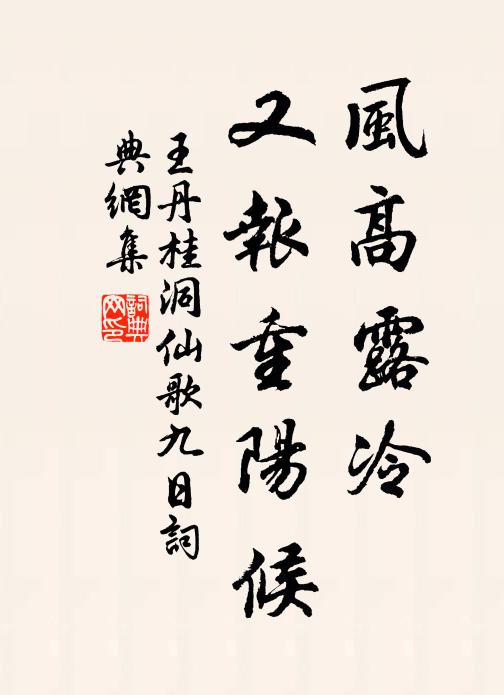 風高露冷
又報重陽候
王丹桂洞仙歌九日詞
典網集
詞典网印